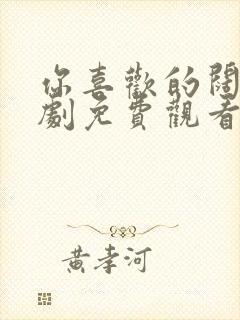 你喜歡的闊
劇免費觀看
黃孝河